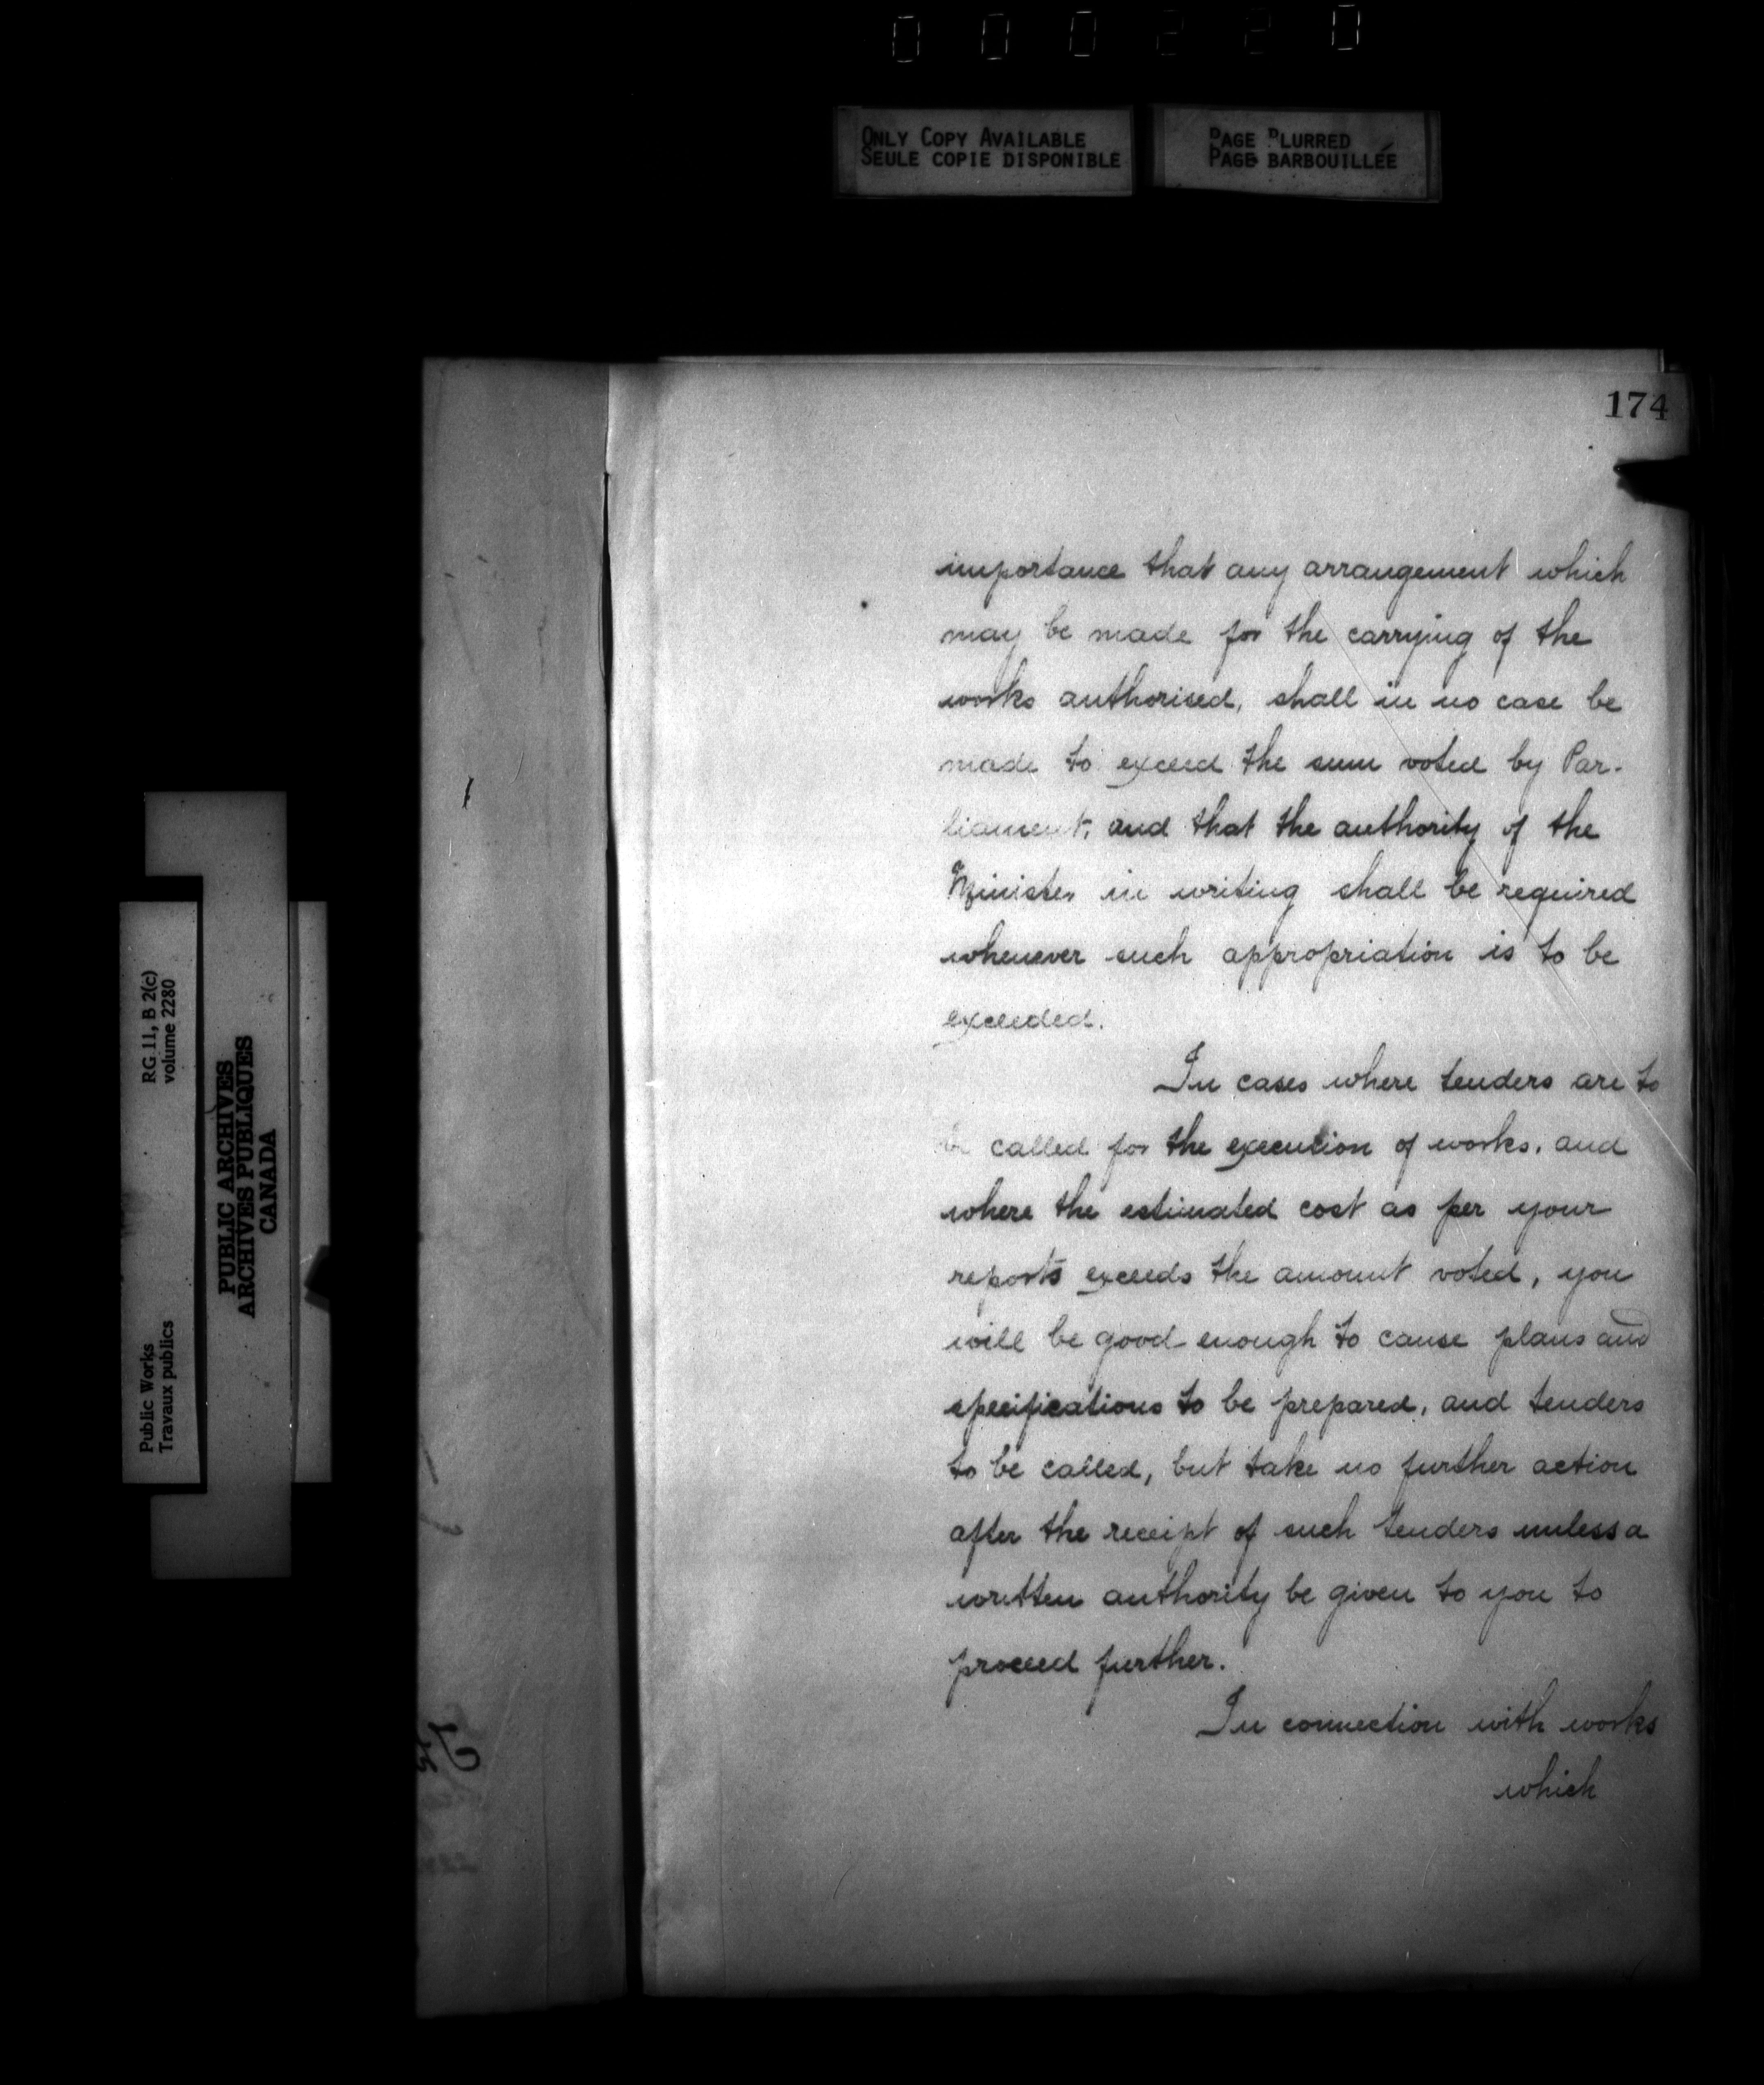 000220
ONLY COPY AVAILABLE
SEULE COPIE DISPONIBLE
PAGE BLURRED
PAGE BARBOUILLÉE
174
importance that any arrangement which
may be made for the carrying of the
works authorised, shall in no case be
made to exceed the sum voted by Par-
liament, and that the authority of the
Minister in writing shall be required
whenever such appropriation is to be
exceeded.
In cases where tenders are to
be called for the execution of works, and
where the estimated cost as per your
reports exceeds the amount voted, you
will be good enough to cause plans and
specifications to be prepared, and tenders
to be called, but take no further action
after the receipt of such tenders unless a
written authority be given to you to
proceed further.
In connection with works
which
RG 11, B 2(c)
volume 2280
Public Works
Travaux publics
PUBLIC ARCHIVES
ARCHIVES PUBLIQUES
CANADA